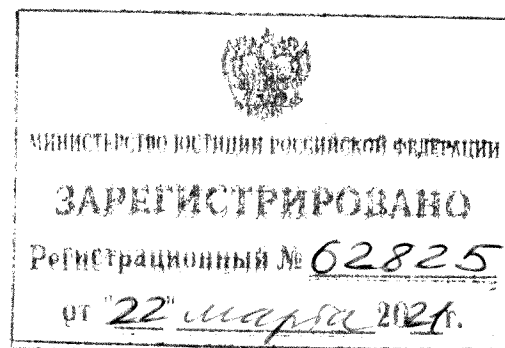 МИНИСТЕРСТВО ЮСТИЦИИ РОССИЙСКОЙ ФЕДЕРАЦИИ
ЗАРЕГИСТРИРОВАНО
Регистрационный № 62825
от "22" марта 2021г.